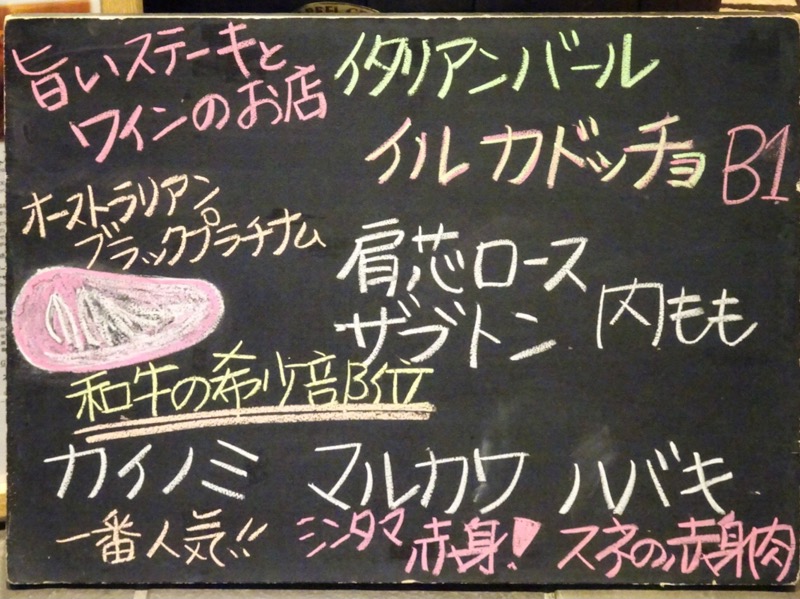 旨いステーキと
ワインのお店
イタリアンバール
イル カドッチョ B1
オーストラリアン
ブラックプラチナム
肩芯ロース
ザブトン 内もも
和牛の希少部位
カイノミ マルカワ ハバキ
一番人気!! シンタマ 赤身! スネの赤身肉